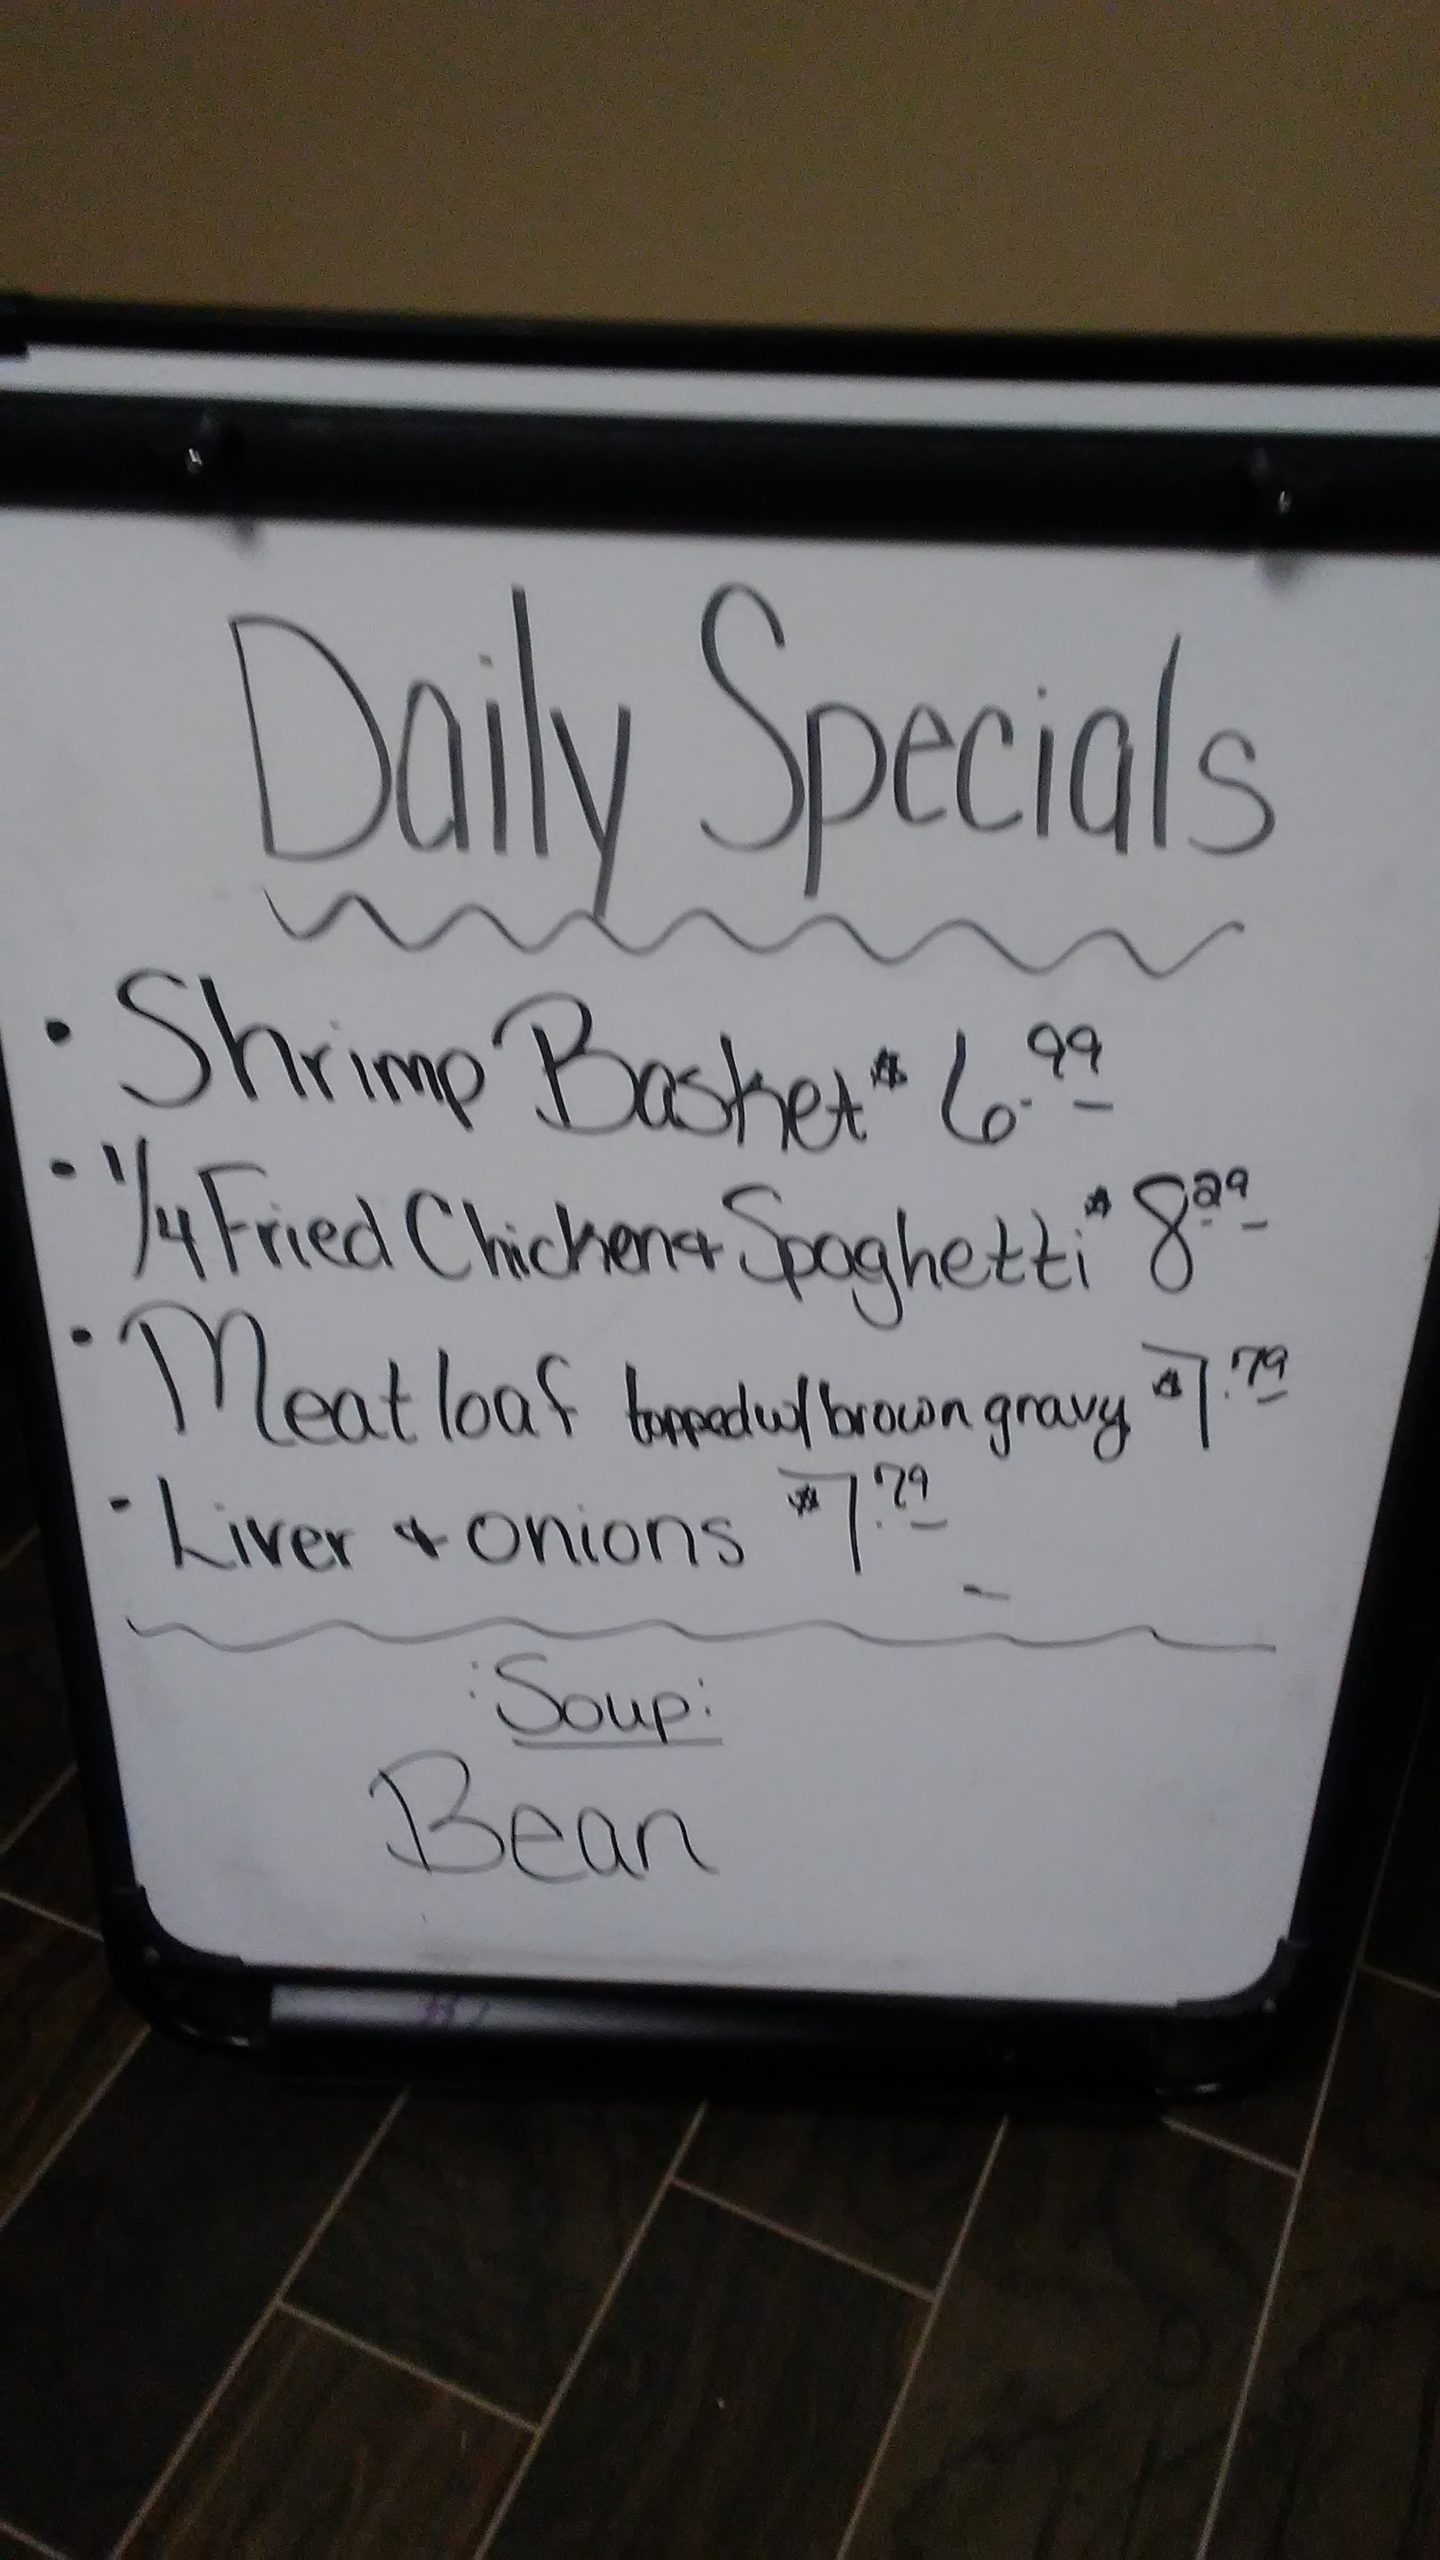 Daily Specials
• Shrimp Basket $6.99
• 1/4 Fried Chicken & Spaghetti $8.29
• Meatloaf topped w/ brown gravy $7.79
• Liver & onions $7.79
:Soup:
Bean